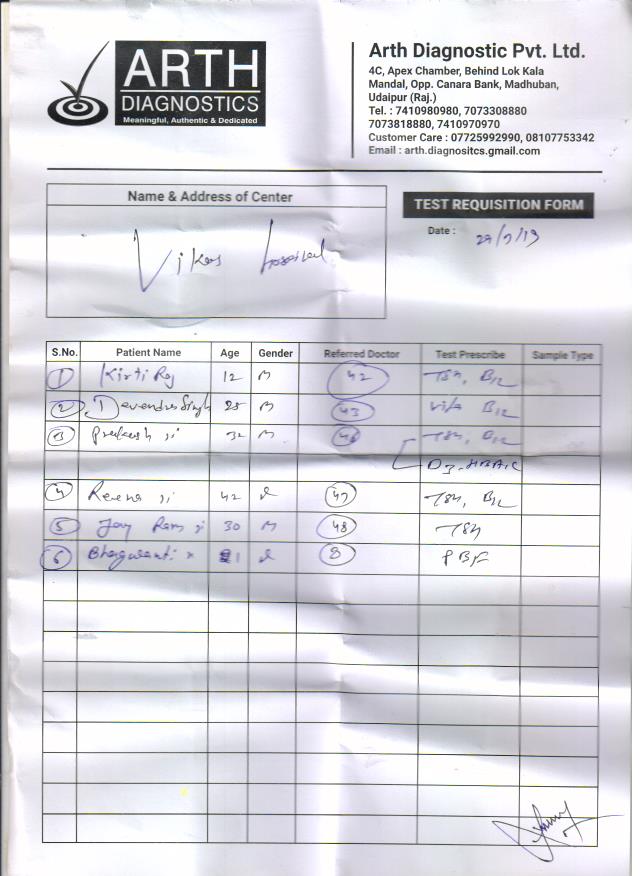 ARTH
DIAGNOSTICS
Meaningful, Authentic & Dedicated
Arth Diagnostic Pvt. Ltd.
4C, Apex Chamber, Behind Lok Kala
Mandal, Opp. Canara Bank, Madhuban,
Udaipur (Raj.)
Tel. : 7410980980, 7073308880
7073818880, 7410970970
Customer Care : 07725992990, 08107753342
Email : arth.diagnositcs.gmail.com
Name & Address of Center
Vikas Hospital
TEST REQUISITION FORM
Date :
S.No. Patient Name Age Gender Referred Doctor Test Prescribe Sample Type
1 Kirti Raj 12 M 42 TSH, B12
2 Devendra Singh 28 M 43 B12
3 Prakash ji 32 M TSH, B12
D3, HBA1C
4 Reena ji 42 47 TSH, B12
5 Jay Ram ji 30 M 48 TSH
6 Bhagwanti 8 PBF